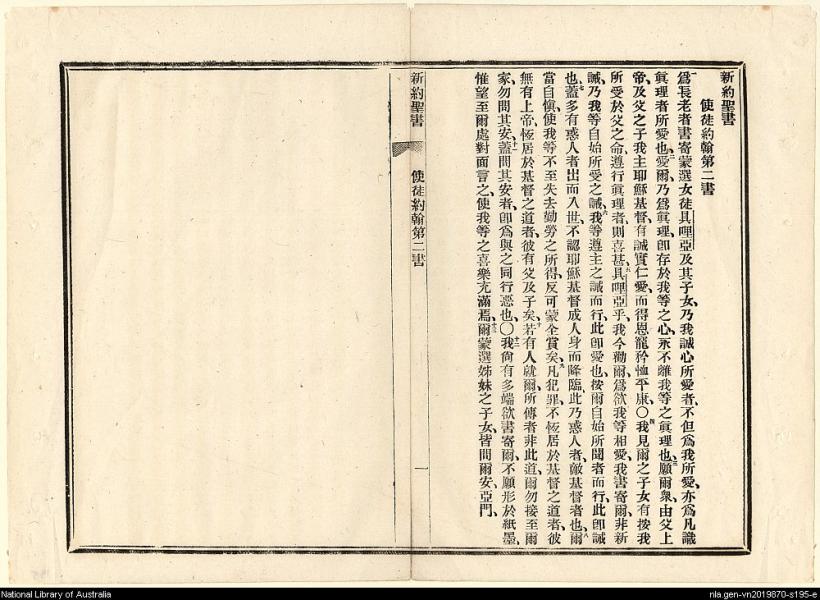 新約聖書
使徒約翰第二書
一爲長老者書寄蒙選女徒具哩亞及其子女乃我誠心所愛者、不但爲我所愛、亦爲凡識
眞理者所愛也、二愛爾乃爲眞理卽存於我等之心、永不離我等之眞理也、三願爾衆、由父上
帝、及父之子我主耶穌基督、有誠實仁愛、而得恩寵矜恤平康、〇四我見爾之子女有按我
所受於父之命、遵行眞理者、則喜甚、五具哩亞乎、我今勸爾、爲欲我等相愛、我書寄爾、非新
誡、乃我等自始所受之誡、六我等遵主之誡而行、此卽愛也、按爾自始所聞者而行、此卽誡
也、七蓋多有惑人者出而入世、不認耶穌基督成人身而降臨、此乃惑人者、敵基督者也、八爾
當自愼、使我等不至失去勤勞之所得、反可蒙全賞矣、九凡犯罪、不恆居於基督之道者、彼
無有上帝、恆居於基督之道者、彼有父及子矣、十若有人就爾、所傳者非此道、爾勿接至爾
家、勿問其安、十一蓋問其安者、卽爲與之同行惡也、〇十二我尙有多端欲書寄爾、不願形於紙墨、
惟望至爾處對面言之、使我等之喜樂充滿焉、十三爾蒙選姊妹之子女、皆問爾安、亞門、
新約聖書
使徒約翰第二書
一
National Library of Australia
nla.gen-vn2019870-s195-e